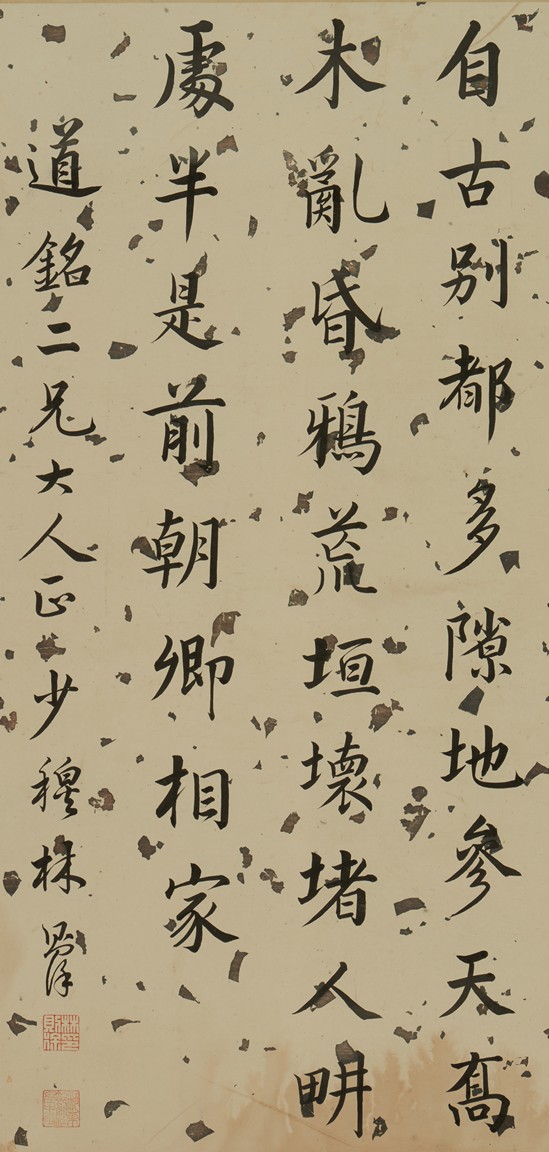 自古別都多隙地參天喬
木亂昏鴉荒垣壞堵人畊
處半是前朝卿相家
道銘二兄大人正少穆林則徐
林則徐印